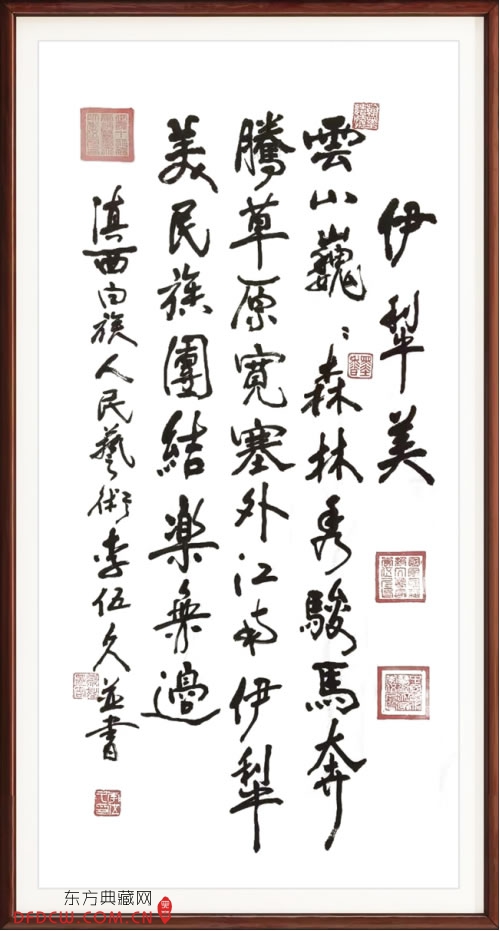 伊犁美
雲山巍〻森林秀駿馬奔
騰草原寬塞外江南伊犁
美民族團結樂無邊
滇西白族人民藝術李伍久並書
东方典藏网
DFDCW.COM.CN